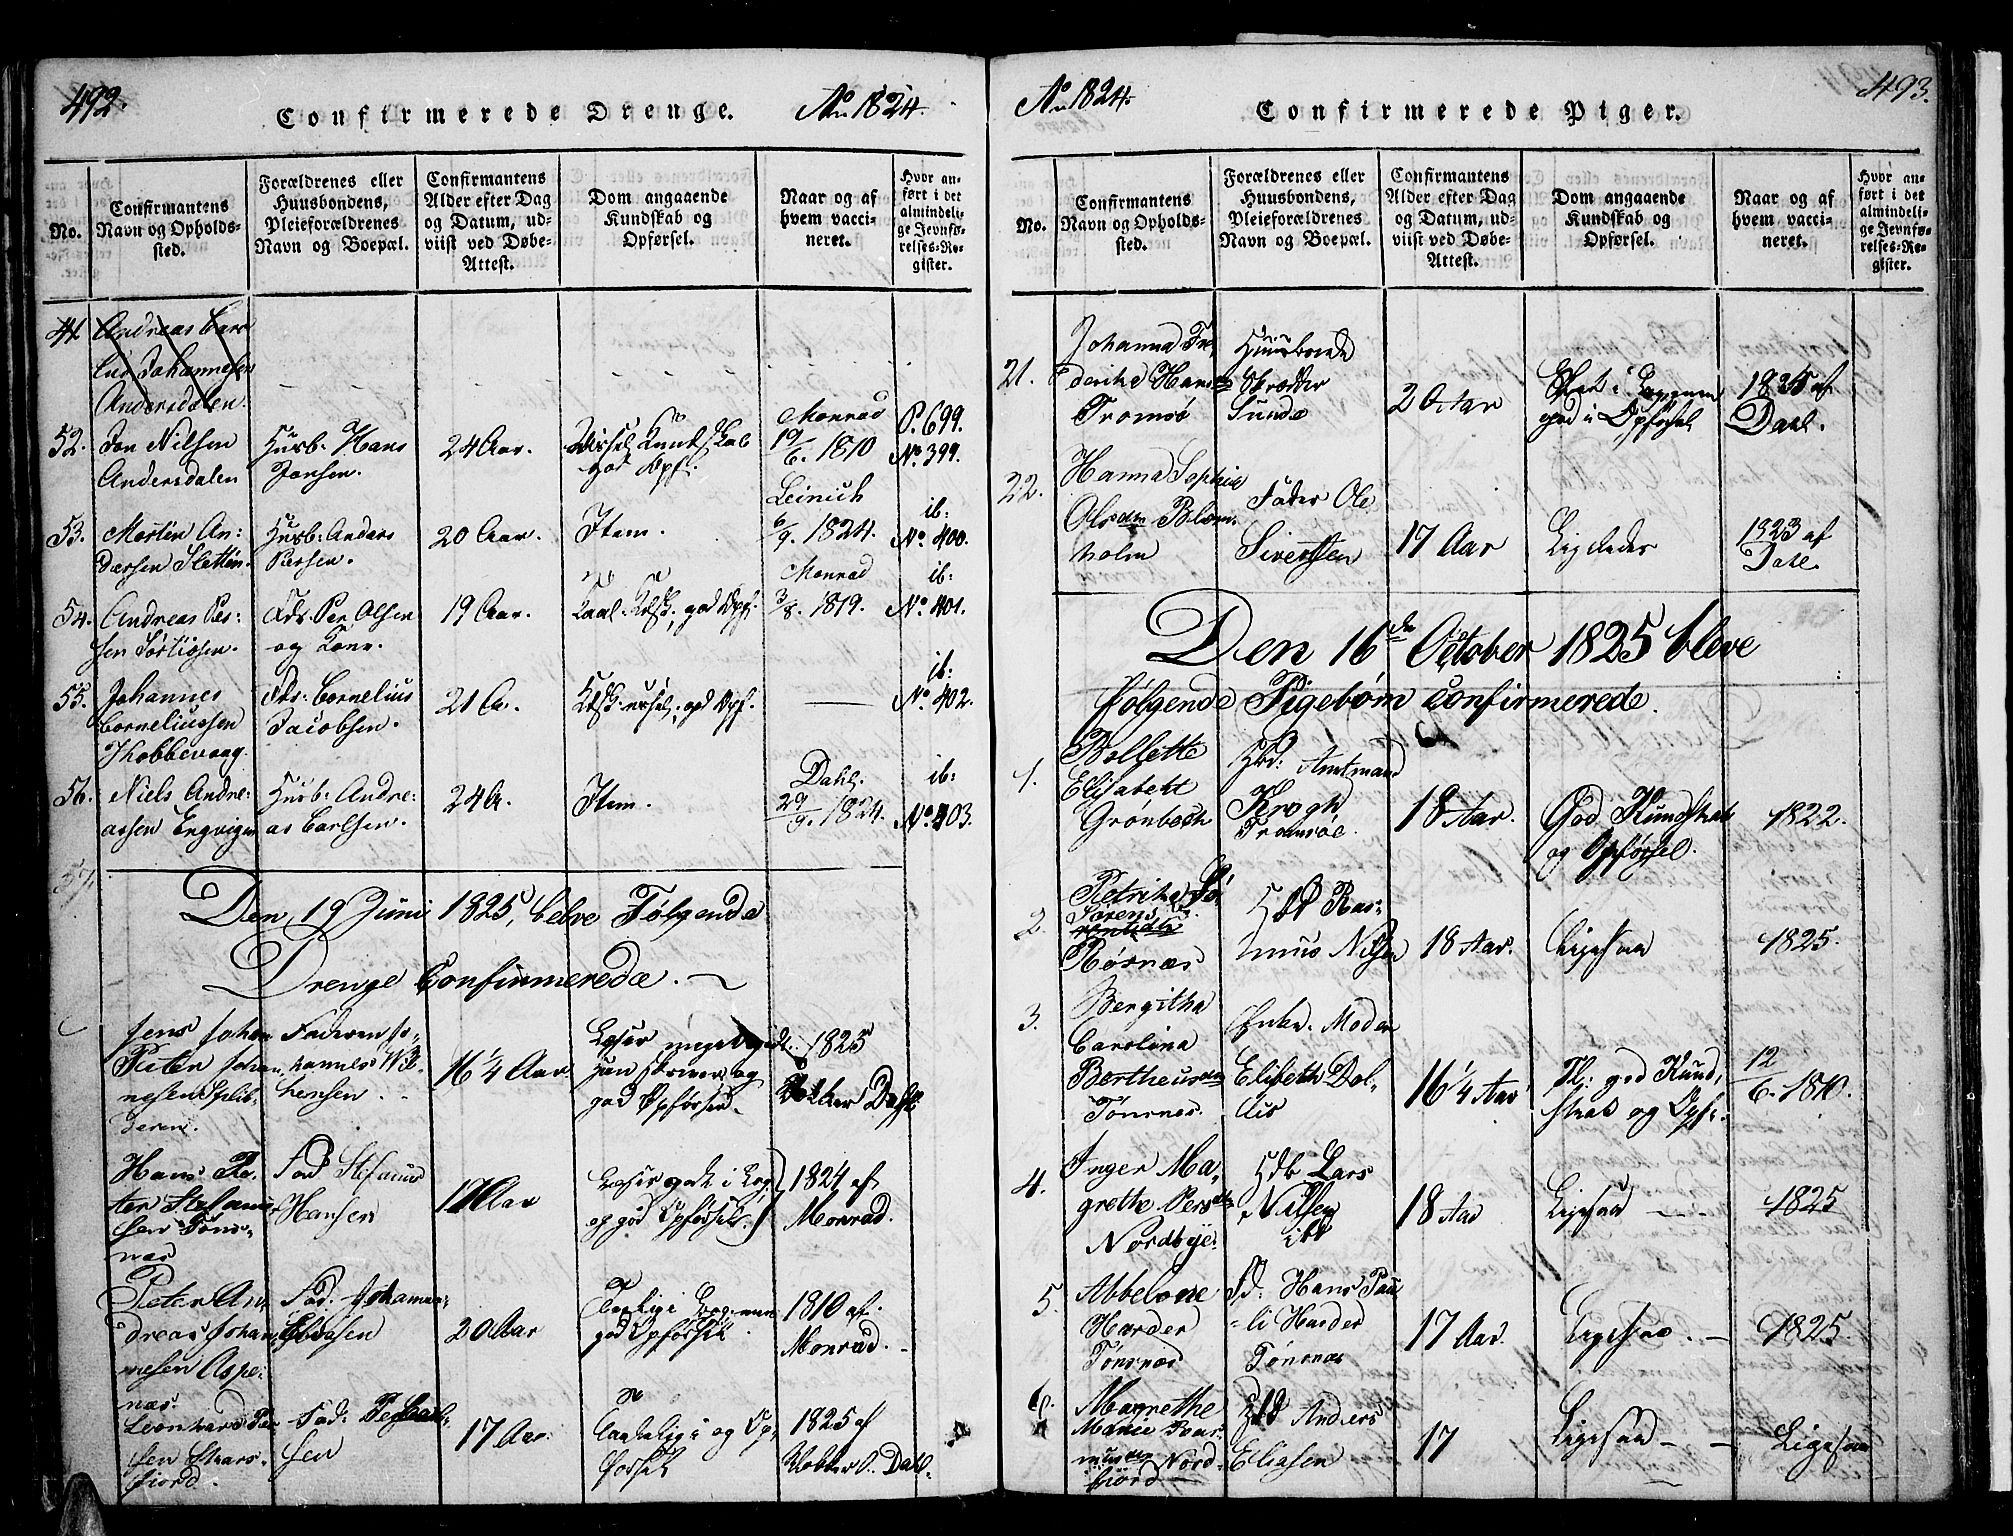 492.
Confirmerede Drenge.
Ao 1824.
No.
Confirmantens
Navn og Opholds-
sted.
Forældrenes eller
Huusbondens,
Pleieforældrenes
Navn og Boepæl.
Confirmantens
Alder efter Dag
og Datum, ud-
viist ved Døbe-
Attest.
Dom angaaende
Kundskab og
Opførsel.
Naar og af
hvem vacci-
neret.
Hvor an-
ført i det
almindeli-
ge Jevnfø-
relses-Re-
gister.
Andreas Cor
lius Johannesen
Andersdalen.
52.
Jon Nilsen
Andersdalen
Husb: Hans
Jonsen.
24 Aar.
Kundskab
god Opf.
Monrad
19/6. 1810
P. 699.
No. 399.
53.
Morten An:
dersen Sletten.
Husb: Anders
Persen.
20 Aar.
Item.
Leinich
6/9. 1824.
ib:
No. 400.
54.
Andreas Per-
sen Sørtiosen.
Fdr. Per Olsen
og Kone.
19 Aar.
Taal. Kdsk., god Opf.
Monrad
3/8. 1819.
ib:
No. 401.
55.
Johannes
Corneliussen
Thobbevaag.
Fdr. Cornelius
Jacobsen.
21 A.
Kdsk. god Opf.
ib:
No. 402.
56.
Niels Andre:
assen Engvigen
Husb: Andre-
as Carlsen.
24 A.
Item.
Dahl.
29/9. 1824.
ib:
No. 403.
57.
Den 19 Juni 1825, beleve Følgende
Drenge Confirmerede.
Jens Johan
Peter Johan
nesen
Faderen Jo-
hannes
16 1/4 Aar
god Opførsel.
1825
Dahl
Hans Pe-
ter Stefanu
sen Tøns-
nas
Fad Stefanus
Hansen
17 Aar
og god Opførsel.
1824 af
Monrad.
Peter An-
dreas Johan
nesen Aspe-
nas.
Fad: Johannes
Eliasen
20 Aar
god Opførsel.
1810 af
Monrad.
Leonhard Per
sen Staars-
fiord.
Fad: Peder
sen
17 Aar.
og Op-
førsel
1825 af
Dahl.
Ao 1824.
Confirmerede Piger.
493.
No.
Confirmantens
Navn og Opholds-
sted.
Forældrenes eller
Huusbondens,
Pleieforældrenes
Navn og Boepæl.
Confirmantens
Alder efter Dag
og Datum, ud-
viist ved Døbe-
Attest.
Dom angaaende
Kundskab og
Opførsel.
Naar og af
hvem vacci-
neret.
Hvor an-
ført i det
almindeli-
ge Jevnfø-
relses-Re-
gister.
21.
Johanna Fre
derike Hans
Tromsø
Huusbonde
Skrædder
Sunde
20 Aar
god i Opførsel
1825 af
Dahl.
22.
Hanna Sophie
Olsdtr Blom
holm
Fader Ole
Sivertsen
17 Aar
Ligeledes
1823 af
Dahl.
Den 16de October 1825 bleve
følgende Pigebørn confirmerede.
1.
Bollette
Elisabeth
Grønbech
Hbd: Amtmand
Krogh
Tromsøe.
18 Aar.
God Kundskab
og Opførsel.
1822.
2.
Petrike
Sørens
Rørnæs
Ras-
mus Nilsen
18 Aar.
Ligesaa
1825.
3.
Bergitha
Carolina
Bertheusdtr
Tønsnes.
Enke. Moder
Elisbeth Dol-
dis
16 1/4 Aar
Tl: god Kund-
skab og Opf.
12/6. 1810.
4.
Inger Ma-
grethe Persdtr
Nordbye.
Hdb Lars
Nilsen
ibd
18 Aar
Ligesaa
1825
5.
Abbelone
Harder
Tønsnæs
Fd: Hans Pau
li Harder
Tønsnæs
17 Aar.
Ligesaa.
1825.
6.
Magrethe
Marie
Nord-
fiord
Anders
Eliasen
17
Ligesaa
Ligesaa